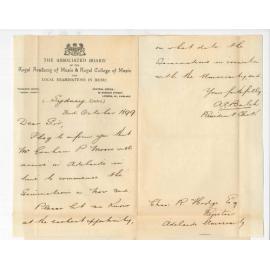 THE ASSOCIATED BOARD
OF THE
Royal Academy of Music & Royal College of Music
FOR
LOCAL EXAMINATIONS IN MUSIC
CENTRAL OFFICE
Sydney
2nd October 1899
Dear Sir,
I beg to inform you that
Mr Graham P Moore will
arrive in Adelaide in
time to commence the
Examinations in Nov and
Please let me know
at the earliest opportunity,
on what date the
Examinations in connection
with the University end
Yours faithfully
Resident Clerk
Chas. R Hodge Esq
Registrar
Adelaide University